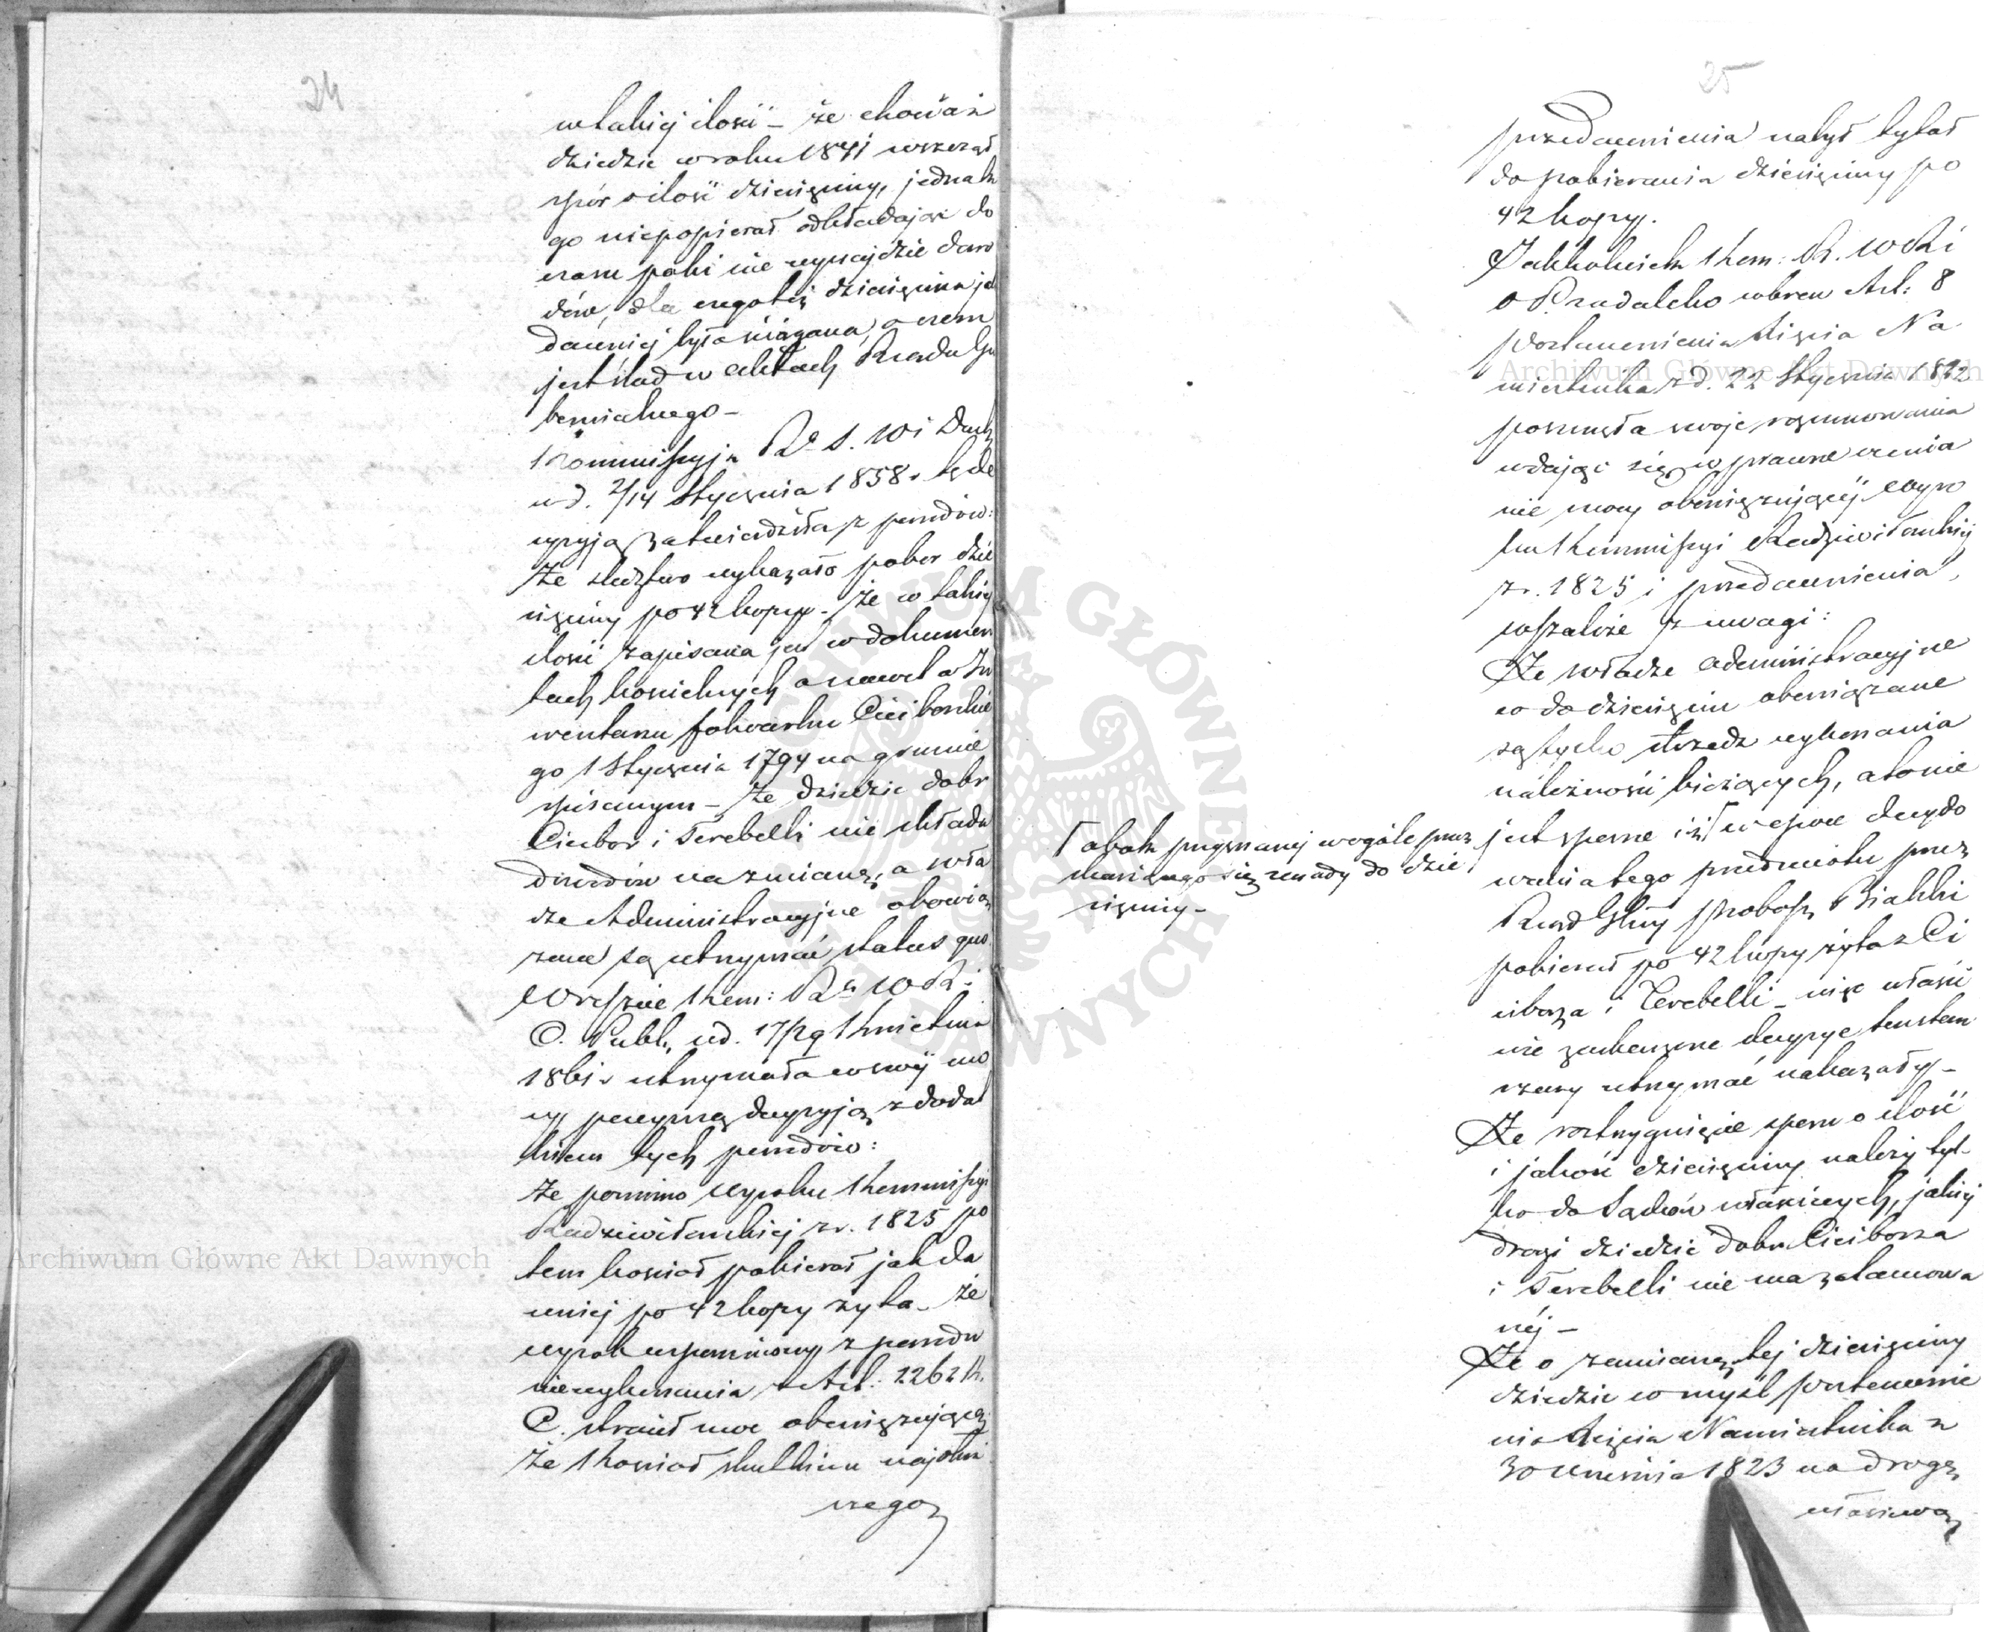 24
w takiej ilości – że chociaż
dziedzic w roku 1841 wszczął
spór o ilość dziesięciny, jednak
go niepopierał odkładając do
czasu póki nie wynajdzie dowo
dów, dla czego też dziesięcina ja
dawniej była ściągana, o czem
jest ślad w aktach Rządu Gu
bernialnego –
Kommissyja R. S. W. i Duch
w d. 2/14 Stycznia 1858 r. tę de
cyzyją zatwierdziła z powodów:
Że śledztwo wykazało pobór dzie
sięciny po 42 kopy – Że w takiej
ilości zapisana jest w dokumen
tach kościelnych a nawet w In
wentarzu folwarku Cieciborskie
go 1 Stycznia 1794 na gruncie
spisanym – Że dziedzic dóbr
Ciecibor i Terebelli nie składa
dowodów na zmianę, a wła
dze Administracyjne obowią
zane są utrzymać status quo
Wreszcie Kom: R. W. R. i
O. Publ. w d. 17/29 Kwietnia
1861 r utrzymała w swej mo
cy powyższą decyzyją z dodat
kiem tych powodów:
Że pomimo wyroku Kommissyi
Radziwiłłowskiej z r. 1825 po
tem kościoł pobierał jak da
wniej po 42 kopy żyta – Że
wyrok wspomniony z powodu
niewykonania z Art: 2262 K.
C. stracił moc obowiązującą
Że Kościoł skutkiem najdłuż
szego
25
przedawnienia nabył tytuł
do pobierania dziesięciny po
42 kopy.
Jakkolwiek Kom: R. W. R. i
O. P. zadaleko wbrew Art: 8
Postanowienia Księcia Na
miestnika z d. 22 Stycznia 1822
posunęła swoje rozumowania
wdając się w prawne ocenia
nie mocy obowiązującej wyro
ku Kommissyi Radziwiłłowskiej
z r. 1825 i przedawnienia,
wszakże z uwagi:
Że władze administracyjne
co do dziesięcin obowiązane
są tylko strzedz wykonania
należności bieżących, a to nie
jest sporne iż w epoce decydo
wania tego przedmiotu przez
Rząd Głny proboszcz Bialski
pobierał po 42 kopy żyta z Ci
cibora i Terebelli – więc właści
wie zaskarżone decyzye ten stan
rzeczy utrzymać nakazały –
Że rozstrzygnięcie sporu o ilość
i jakość dziesięciny należy tyl-
ko do Sądów właściwych, jakiej
drogi dziedzic dóbr Cicibora
i Terebelli nie ma zatamowa
nej –
Że o zamianę tej dziesięciny
dziedzic w myśl postanowie
nia Księcia Namiestnika z
30 Września 1823 na drogę
właściwą
a obok przyznanej w ogóle przez
skarżącego się zasady do dzie
sięciny –
Archiwum Główne Akt Dawnych
Archiwum Główne Akt Dawnych
ARCHIWUM GŁÓWNE AKT DAWNYCH